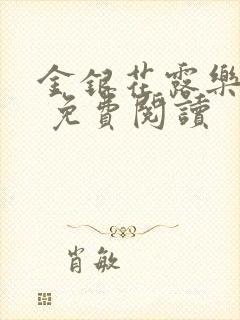 金銀花露樂
免費閱讀
肖敏